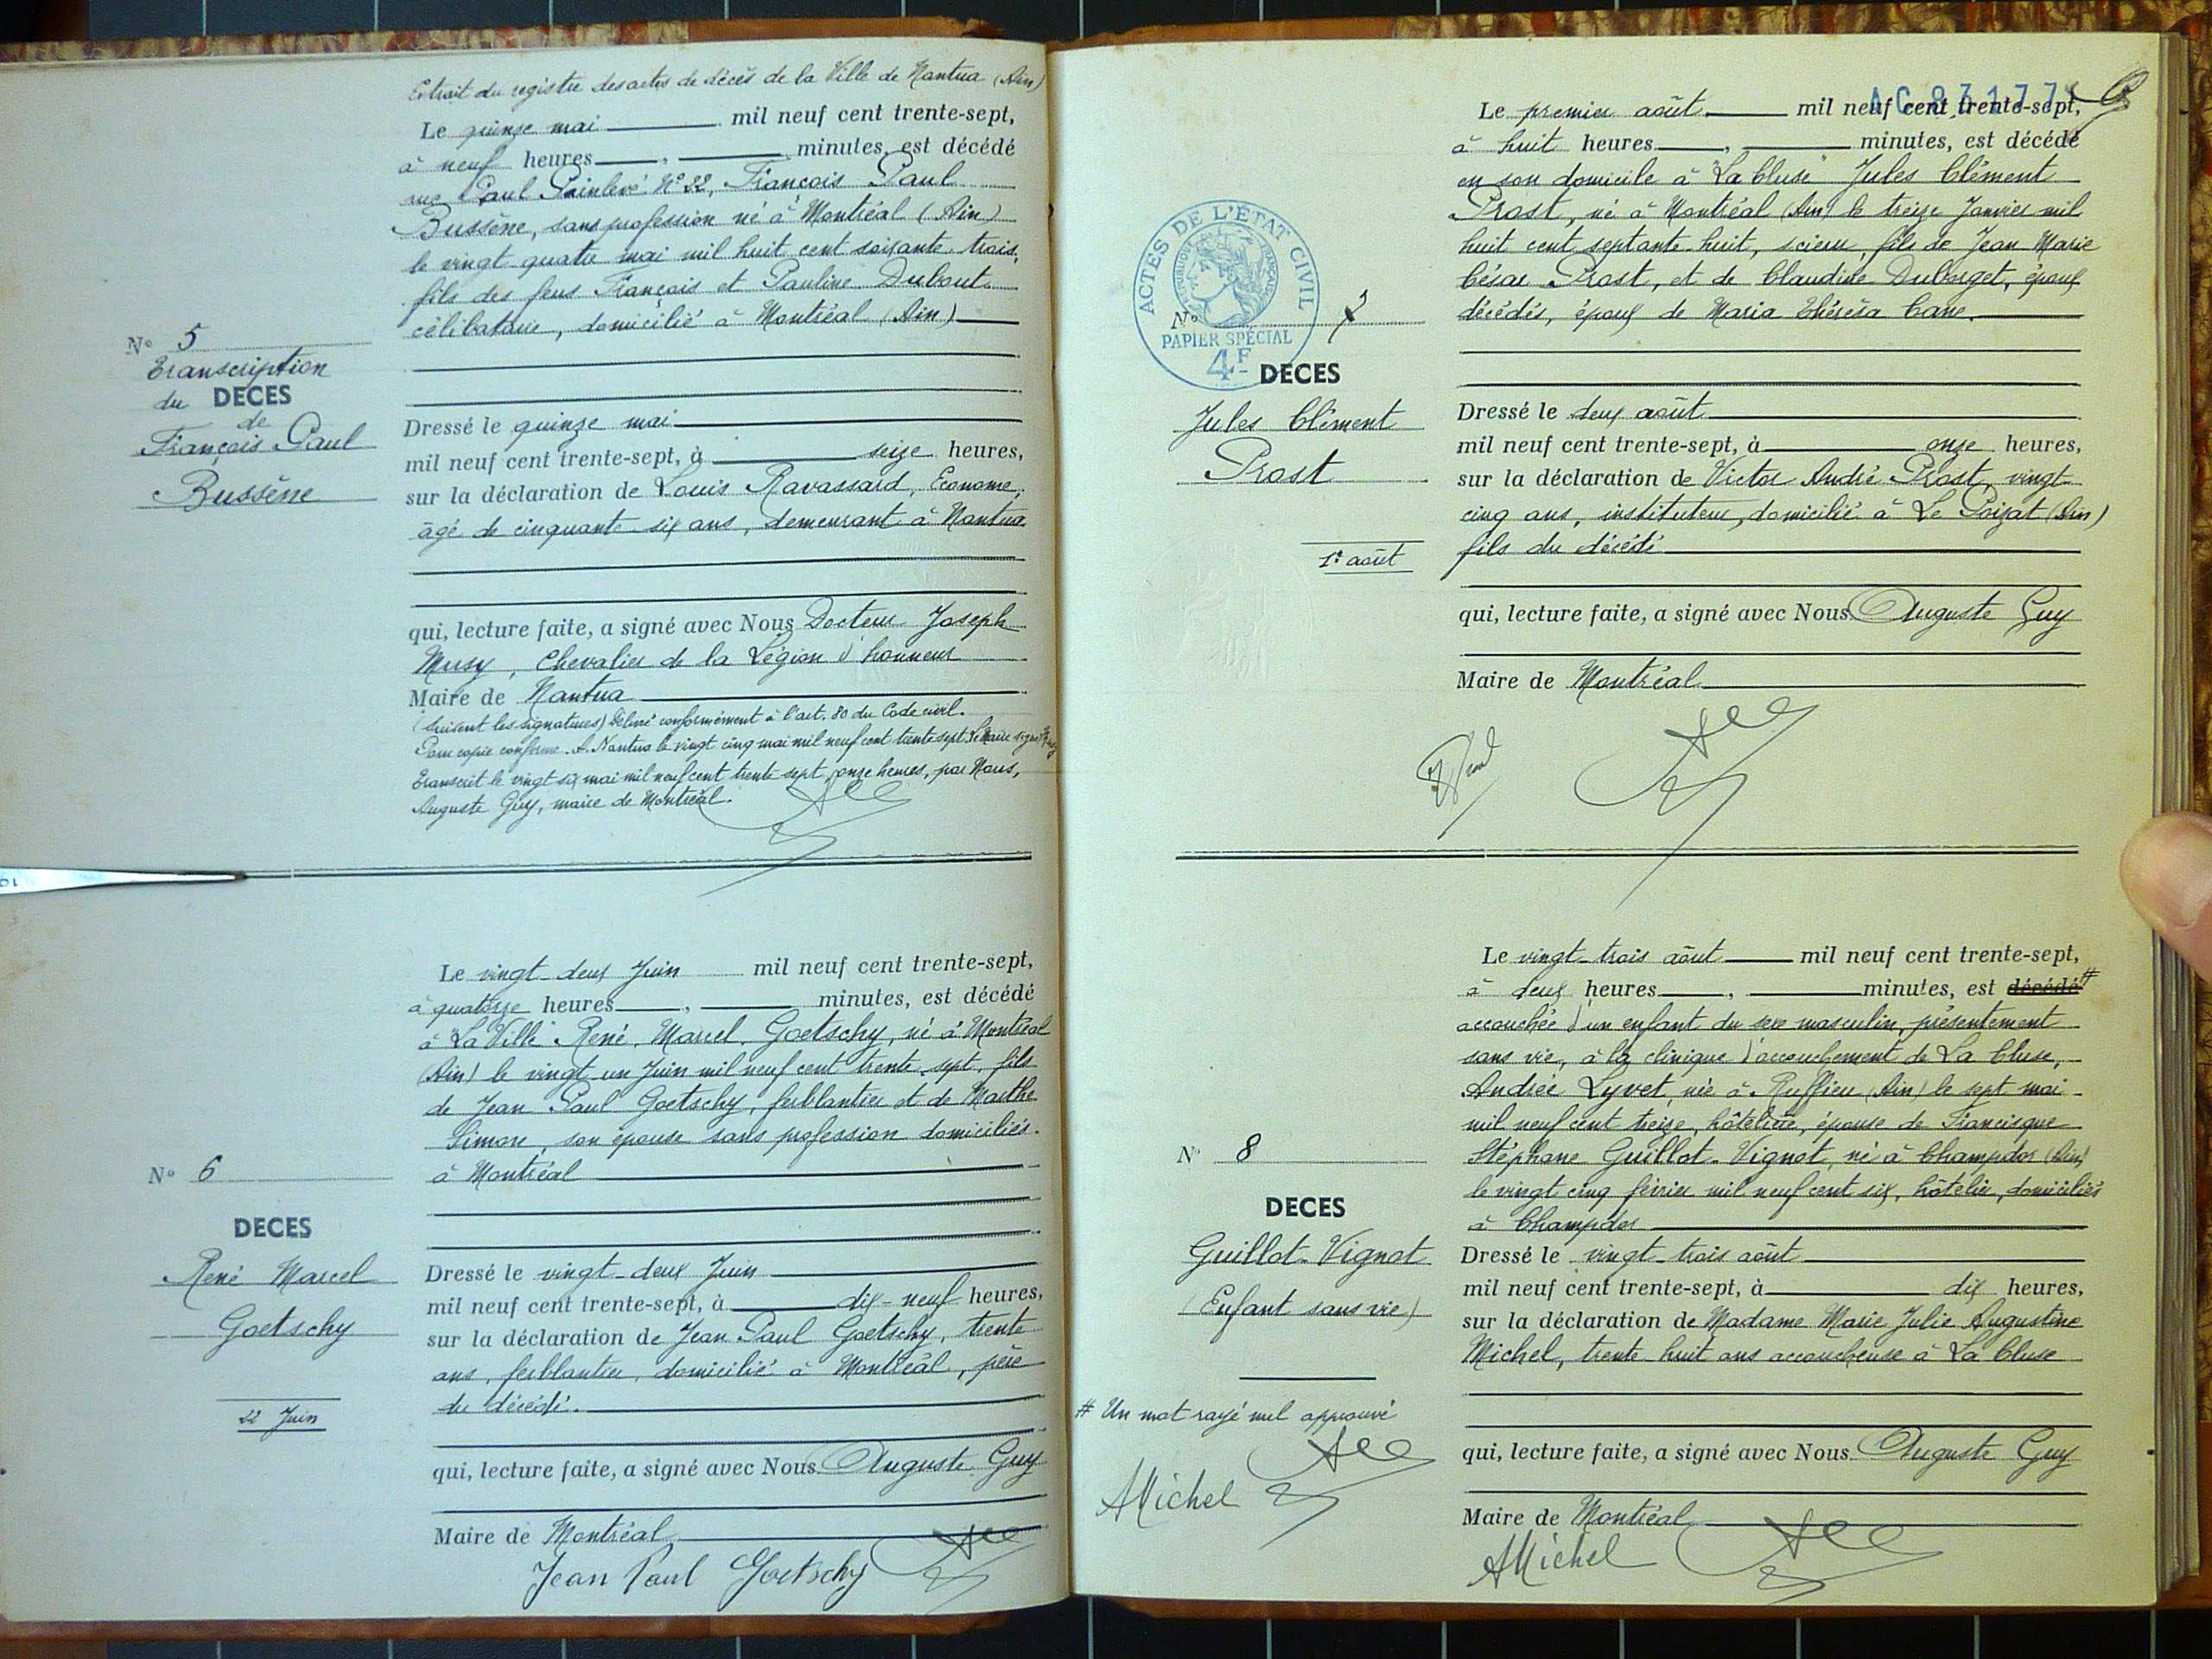 Extrait du registre des actes de décès de la Ville de Nantua (Ain)
Le quinze mai mil neuf cent trente-sept,
à neuf heures , minutes, est décédé
rue Paul Painlevé N° 22, François Paul
Bussène, sans profession né à Montréal (Ain)
le vingt quatre mai mil huit cent soixante trois,
fils des feus François et Pauline Dubout
célibataire, domicilié à Montréal (Ain)
N° 5
Transcription
du DECES
de
François Paul
Bussène
Dressé le quinze mai
mil neuf cent trente-sept, à seize heures,
sur la déclaration de Louis Ravassard, Econome,
âgé de cinquante six ans, demeurant à Nantua
qui, lecture faite, a signé avec Nous Docteur Joseph
Musy, Chevalier de la Légion d'honneur
Maire de Nantua
(Suivent les signatures) Délivré conformément à l'art. 80 du Code civil.
Pour copie conforme. A Nantua le vingt cinq mai mil neuf cent trente sept Le Maire signé Musy
Transcrit le vingt six mai mil neuf cent trente sept, onze heures, par Nous,
Auguste Guy, maire de Montréal.
Le vingt-deux Juin mil neuf cent trente-sept,
à quatorze heures , minutes, est décédé
à "La Ville" René, Marcel, Goetschy, né à Montréal
(Ain) le vingt un Juin mil neuf cent trente sept, fils
de Jean Paul Goetschy, ferblantier et de Marthe
Simon, son épouse sans profession domiciliés
à Montréal
N° 6
DECES
René Marcel
Goetschy
22 Juin
Dressé le vingt-deux Juin
mil neuf cent trente-sept, à dix-neuf heures,
sur la déclaration de Jean Paul Goetschy, trente
ans, ferblantier, domicilié à Montréal, père
du décédé.
qui, lecture faite, a signé avec Nous Auguste Guy
Maire de Montréal
Jean Paul Goetschy
Le premier août mil neuf cent trente-sept,
à huit heures , minutes, est décédé
en son domicile à "La Cluse" Jules Clément
Prost, né à Montréal (Ain) le treize Janvier mil
huit cent septante-huit, scieur, fils de Jean Marie
César Prost, et de Claudine Duborget, époux
décédés, époux de Maria Thérésa Cane.
ACTES DE L'ÉTAT CIVIL
RÉPUBLIQUE FRANÇAISE
N° 7
PAPIER SPÉCIAL
4F
DECES
Jules Clément
Prost
1er août
Dressé le deux août
mil neuf cent trente-sept, à onze heures,
sur la déclaration de Victor André Prost, vingt
cinq ans, instituteur, domicilié à Le Poizat (Ain)
fils du décédé
qui, lecture faite, a signé avec Nous Auguste Guy
Maire de Montréal
Le vingt-trois août mil neuf cent trente-sept,
à deux heures , minutes, est décédé #
accouchée d'un enfant du sexe masculin, présentement
sans vie, à la clinique d'accouchement de La Cluse,
Andrée Lyvet, née à Ruffieu (Ain) le sept mai
mil neuf cent treize, hôtelière, épouse de Francisque
Stéphane Guillot-Vignot, né à Champdor (Ain)
le vingt cinq février mil neuf cent six, hôtelier, domiciliés
à Champdor
N° 8
DECES
Guillot-Vignot
(Enfant sans vie)
# Un mot rayé nul approuvé
AMichel
Dressé le vingt-trois août
mil neuf cent trente-sept, à dix heures,
sur la déclaration de Madame Marie Julie Augustine
Michel, trente-huit ans accoucheuse à La Cluse
qui, lecture faite, a signé avec Nous Auguste Guy
Maire de Montréal
AMichel